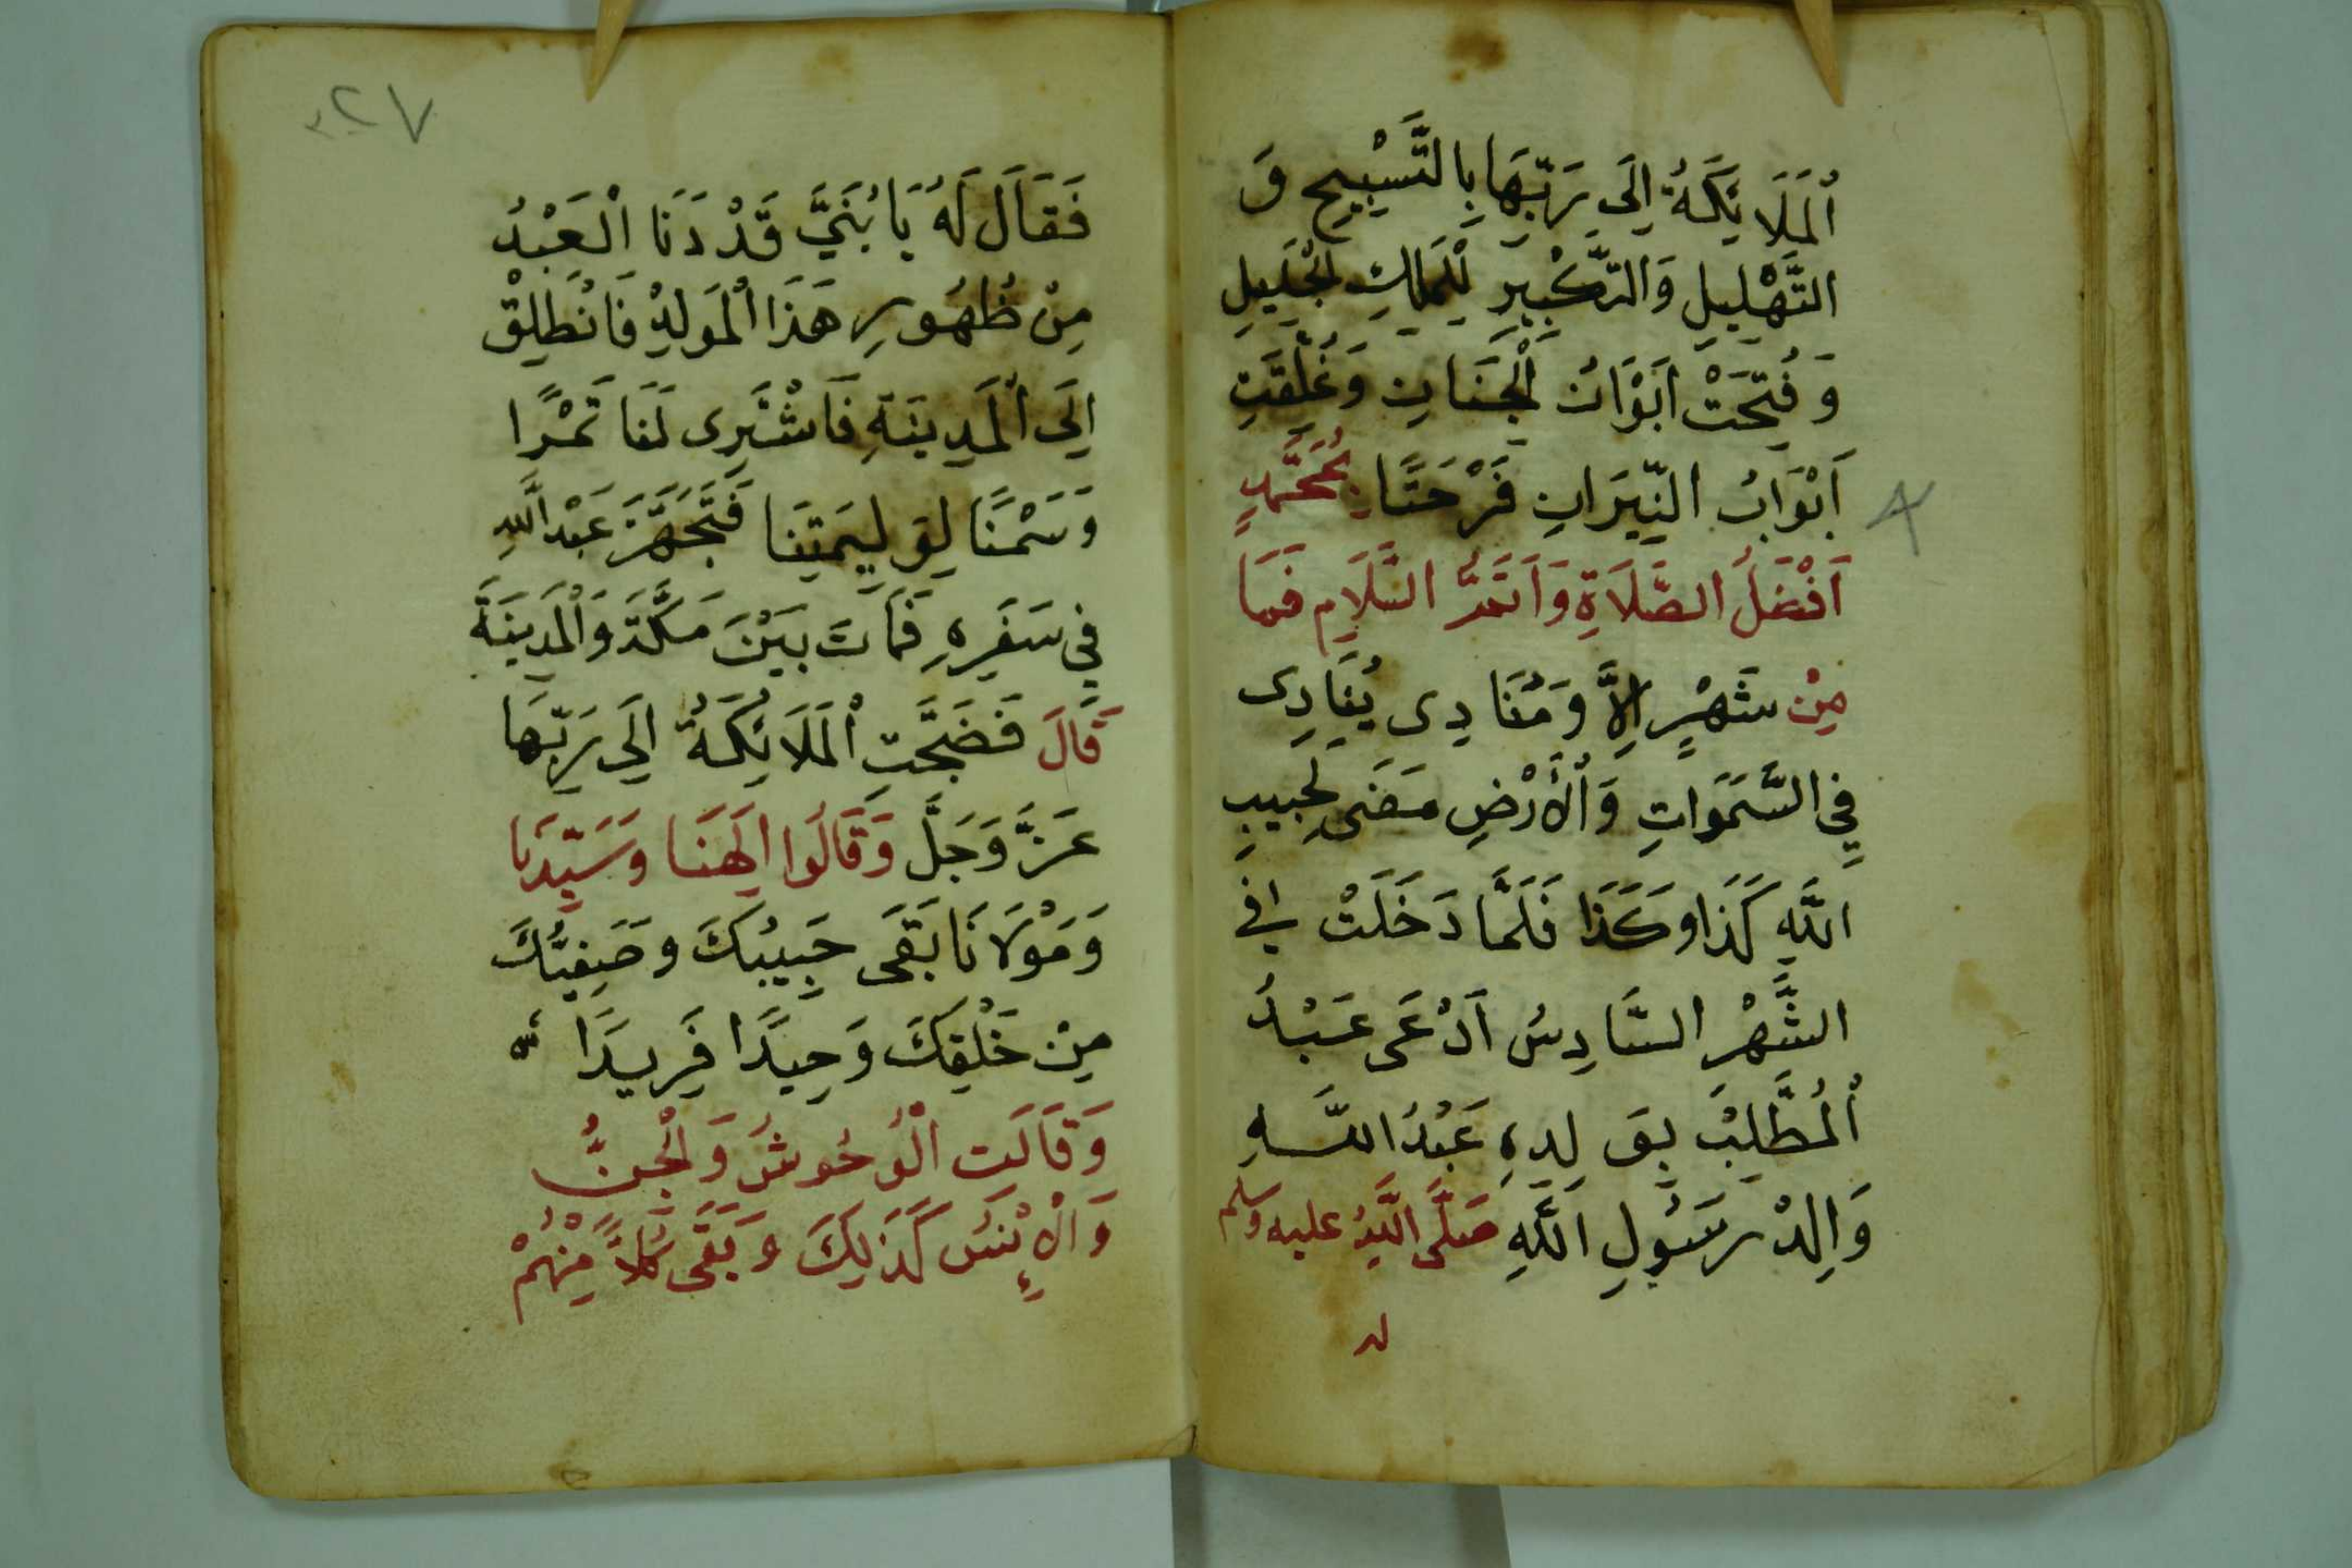 اُلمَلَائِكَةُ اِلَى رَبِّهَا بِالتَّسْبِيحِ وَ
التَّهْلِيلِ وَالتَّكْبِيرِ لْلمَلِكِ الْجَلِيلِ
وَفُتِحَتْ اَبْوَابُ الْجَنَانِ وَغُلِّقَتِ
اَبْوَابُ النِّيرَانِ فَرْحَتًا بِمُحَمَّدٍ
اَفْضَلُ الصَّلَاةِ وَاَتَمُّ السَّلَامِ فَمَا
مِنْ شَهْرٍ اِلاَّ وَمُنَادِى يُنَادِى
فِي السَّمَوَاتِ وَاْلأَرْضِ مَضَى لِحَبِيبِ
اللَّهِ كَذَا وكَذَا فَلَمَّا دَخَلَتْ فِي
الشَّهْرِ السَّادِسُ اَدْعَى عَبْدُ
اُلمُطَّلِبْ بِوَلِدِهِ عَبْدُ اللَّهِ
وَالِدْ رَسُولِ اللَّهِ صَلَّى اللَّهُ عليه وسلم
٧
فَقَالَ لَهُ يَا بُنَيَّ قَدْ دَنَا اْلعَبْدُ
مِنْ ظُهُورِ هَذَا اْلمَولِدْ فَانْطَلِقْ
اِلَى اْلمَدِينَةِ فَاشْتَرِى لَنَا تَمْرًا
وَسَمْنًا لِوَلِيمَتِنَا فَتَجَهَّزَ عَبْدُ اللَّهِ
فِي سَفَرِهِ فَمَاتَ بَيْنَ مَكَّةَ وَاْلمَدِينَةَ
قَالَ فَضَجَّتِ اْلمَلَائِكَةُ اِلَى رَبِّهَا
عَزَّ وَجَلَّ وَقَالُوا اِلَهَنَا وَسَيِّدَنَا
وَمَوْلَانَا بَقَى حَبِيبُكَ وصَفِيُّكَ
مِنْ خَلْقِكَ وَحِيدًا فَرِيدَا
وَقَالَتِ اْلوُحُوشُ وَالْجِنُّ
وَاْلإِنْسُ كَذَلِكَ وَبَقَى كُلاًّ مِنْهُمْ